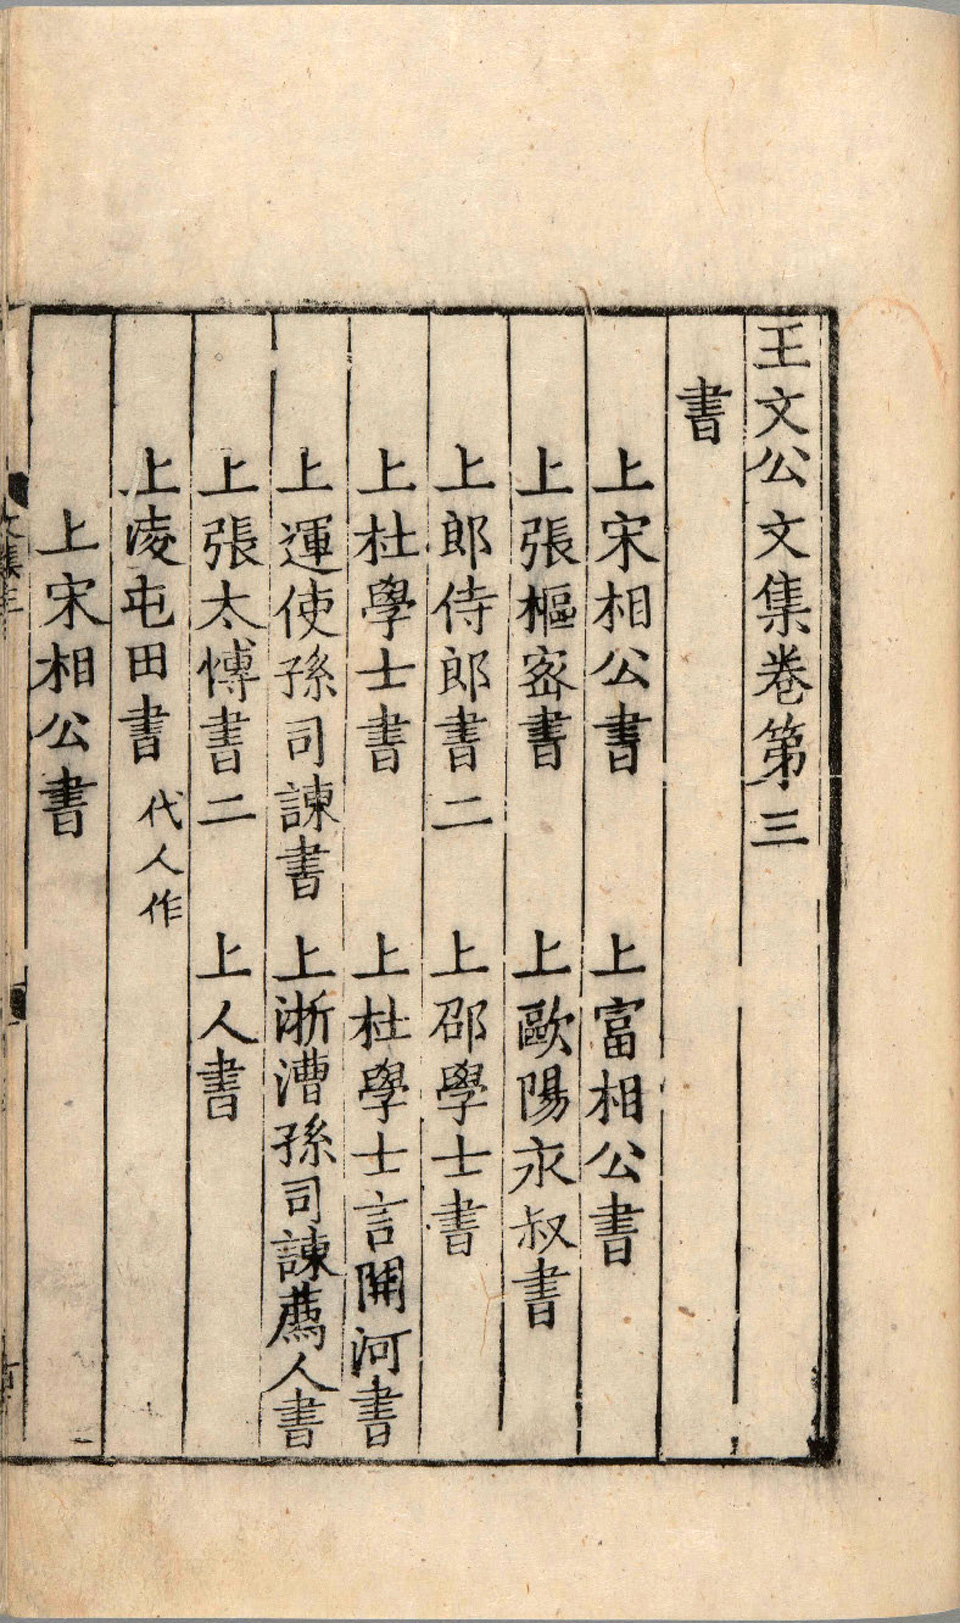 王文公文集卷第三
書
上宋相公書　上富相公書
上張樞密書　上歐陽永叔書
上郎侍郎書二　上邵學士書
上杜學士書　上杜學士言開河書
上運使孫司諫書　上浙漕孫司諫薦人書
上張太博書二　上人書
上凌屯田書 代人作
上宋相公書
文集三